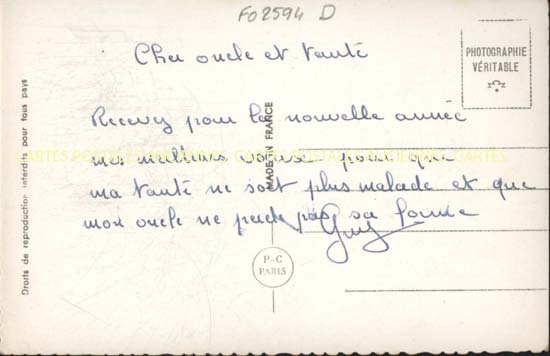 FO2594 D
Cher oncle et tante
PHOTOGRAPHIE
VÉRITABLE
Recevez pour la nouvelle année
mes meilleurs voeux pour que
ma tante ne soit plus malade et que
mon oncle ne perde pas sa forme
Guy
MADE IN FRANCE
P-C
PARIS
Droits de reproduction interdits pour tous pays